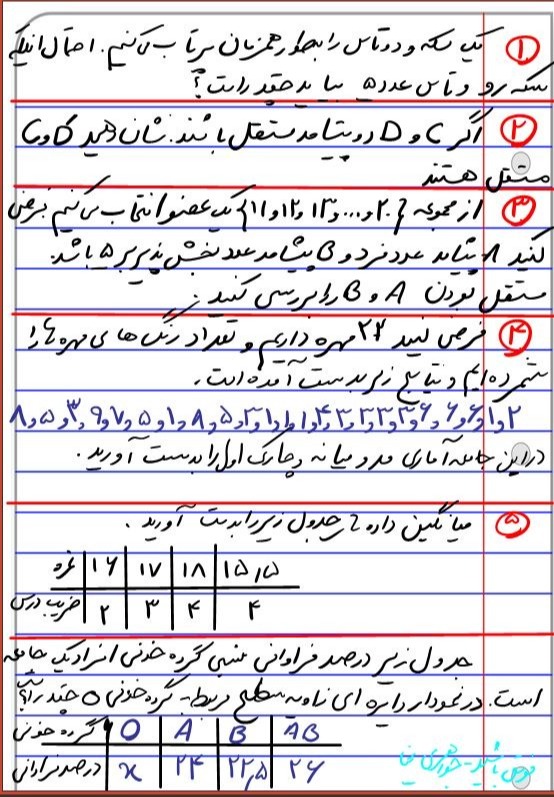 ۱ یک سکه و دو تاس را بطور همزمان پرتاب می‌کنیم. احتمال اینکه
سکه رو و تاس عدد ۵ بیاید چقدر است؟
۲ اگر C و D دو پیشامد مستقل باشند. نشان دهید D' و C
مستقل هستند
۳ از مجموعه {۲۰و...و۱۳و۱۲و۱۱} یک عضو انتخاب می‌کنیم فرض
کنید A پیشامد عدد فرد و B پیشامد عدد بخش پذیر بر ۵ باشد.
مستقل بودن A و B را بررسی کنید.
۴ فرض کنید ۲۲ مهره داریم و تعداد رنگ های مهره ها را
شمرده ایم و نتایج زیر بدست آمده است.
در این جامعه آماری مد و میانه و چارک اول را بدست آورید.
۵ میانگین داده های جدول زیر را بدست آورید.
نمره | ۱۶ | ۱۷ | ۱۸ | ۱۵٫۵
ضریب درس | ۲ | ۳ | ۴ | ۴
جدول زیر درصد فراوانی نسبی گروه خونی افراد یک جامعه
است. در نمودار دایره ای زاویه مربوط به گروه خونی O چند را
گروه خونی | O | A | B | AB
درصد فراوانی | x | ۲۴ | ۲۲٫۵ | ۲۶
موفق باشید